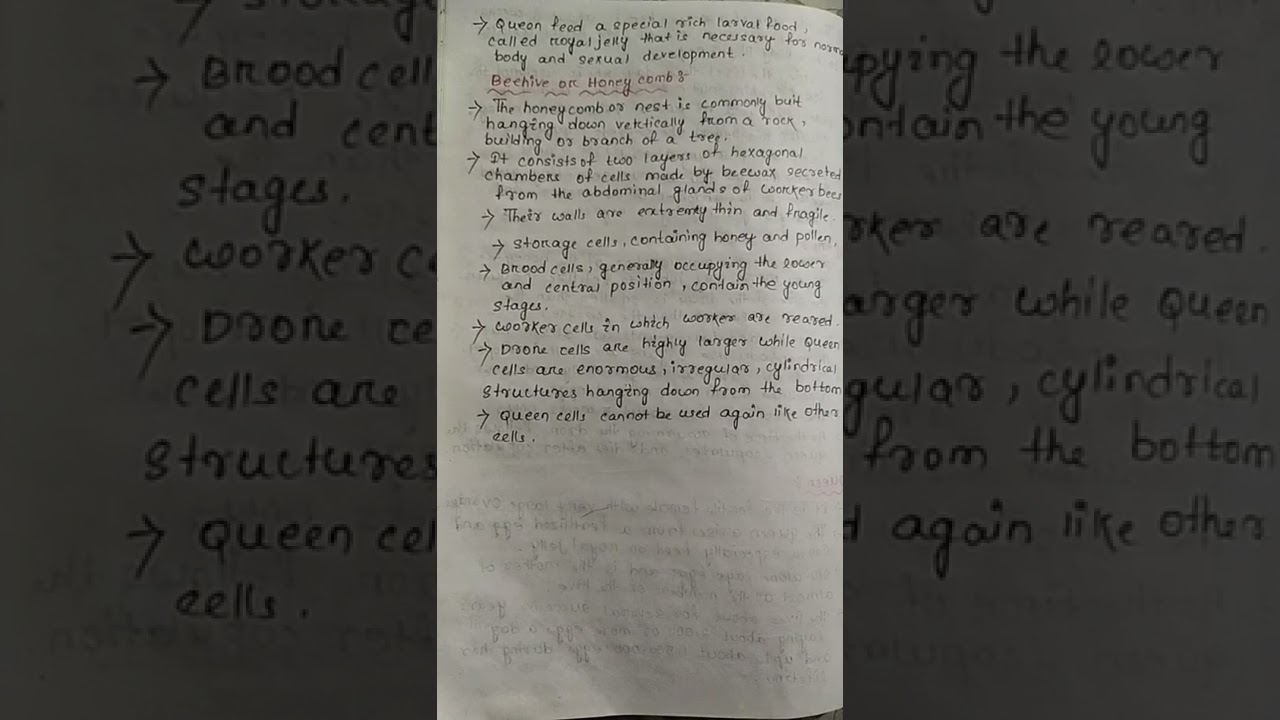 → Queen feed a special rich larval food,
called royal jelly that is necessary for
body and sexual development.
Beehive or Honey comb :-
→ The honeycomb or nest is commonly buit
hanging down vertically from a rock,
building or branch of a tree.
→ It consists of two layers of hexagonal
chambers of cells made by beewax secreted
from the abdominal glands of worker bees
→ Their walls are extremty thin and fragile.
→ Storage cells, containing honey and pollen,
→ Brood cells, generally occupying the lower
and central position, contain the young
stages.
→ Worker cells in which worker are reared.
→ Drone cells are highly larger while Queen
cells are enormous, irregular, cylindrical
structures hanging down from the bottom
→ Queen cells cannot be used again like other
cells.